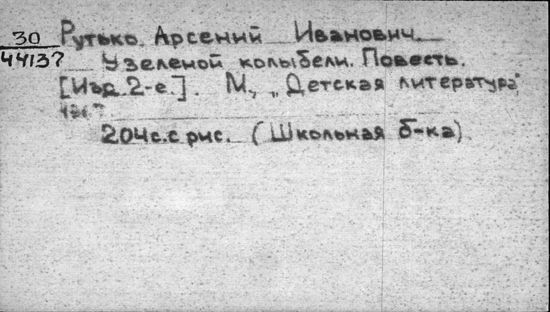 30 Рутько. Арсений Иванович.
44137 У зеленой колыбели. Повесть.
[Изд. 2-е.]. М., „Детская литература"
204с. с рис. (Школьная б-ка).